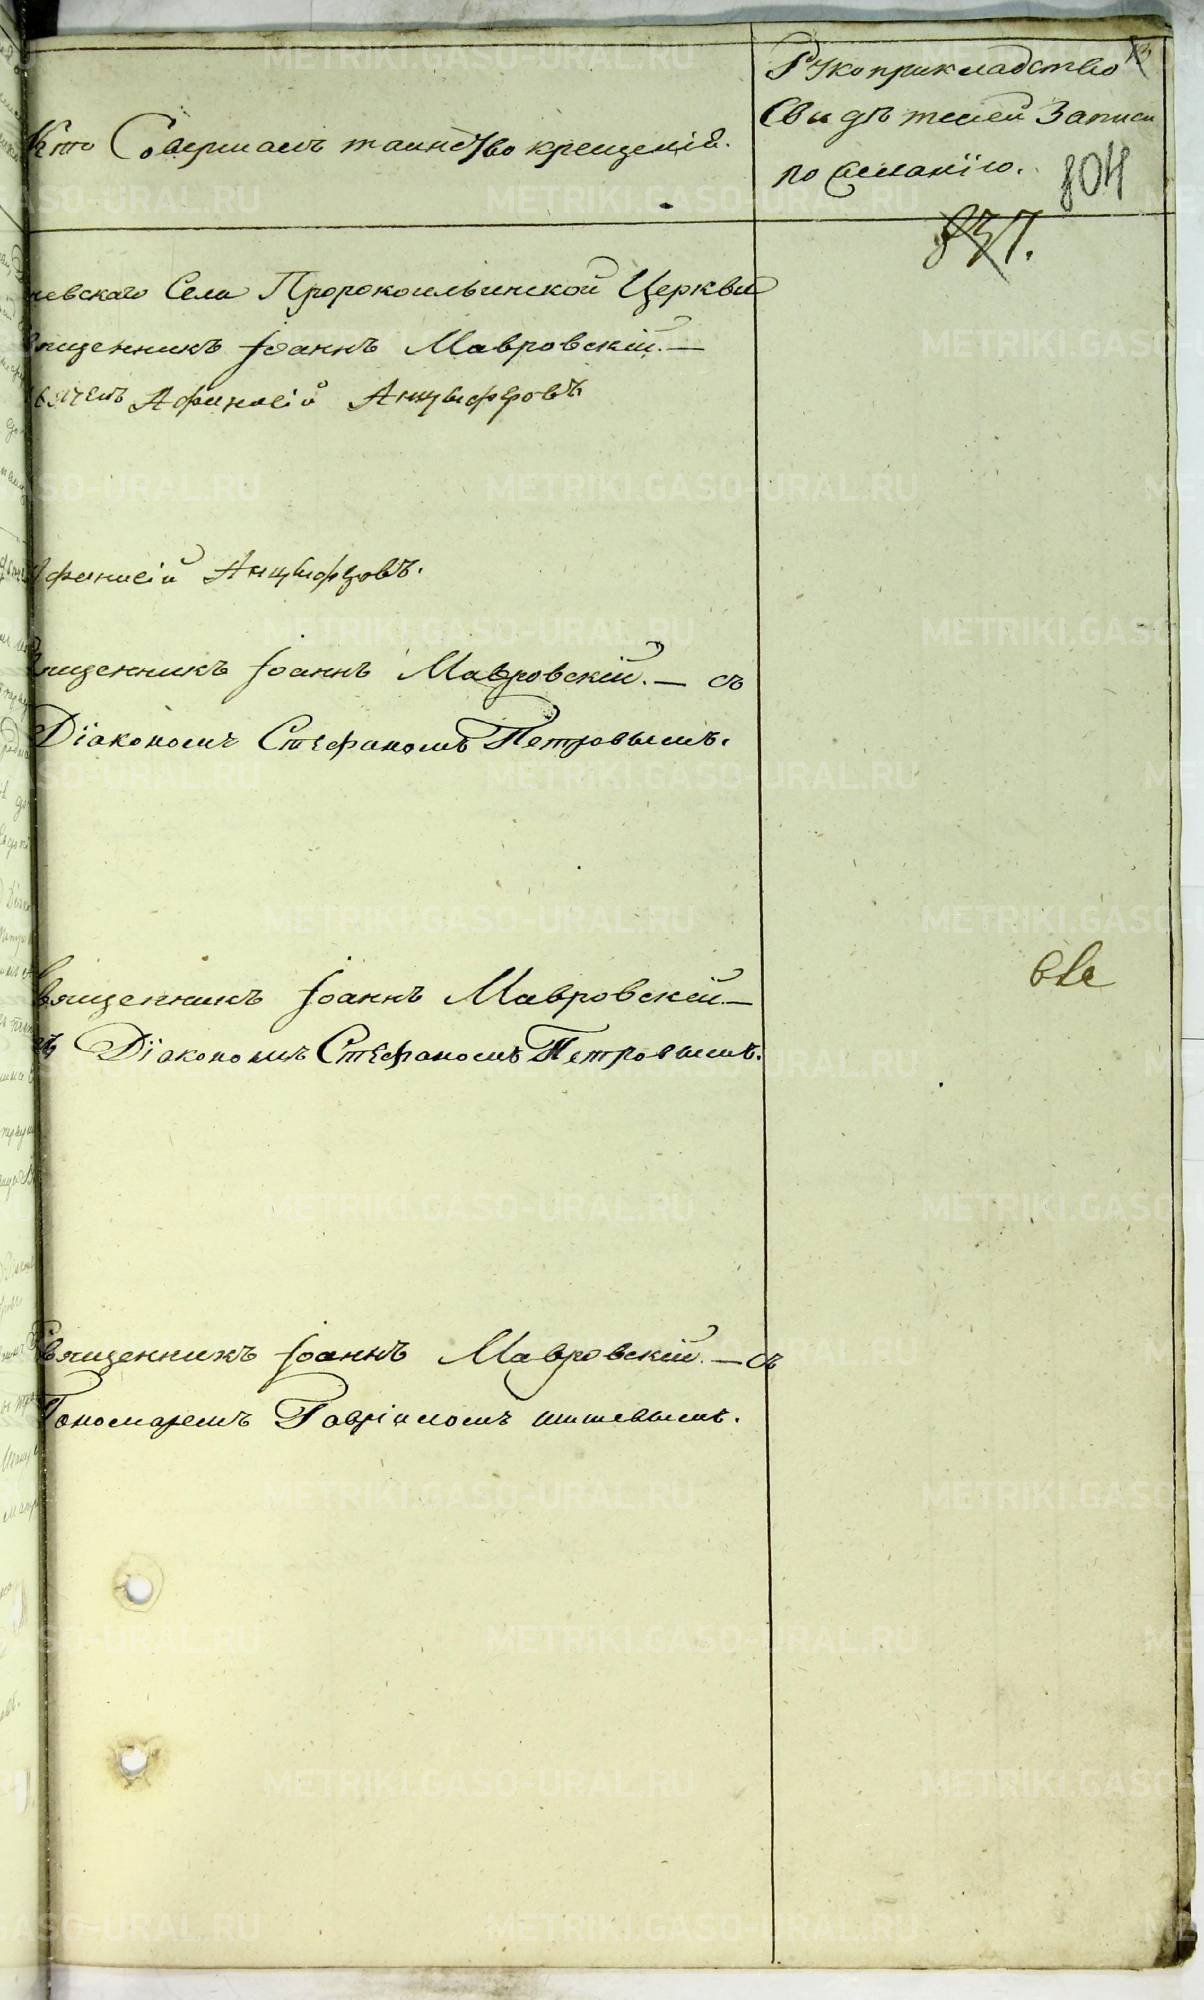 Кто Совершалъ таинство крещенія.
Рукоприкладство
Свидѣтелей Записи
по желанію.
804
837.
невскаго Села Пророкоильинской Церкви
вященникъ Іоаннъ Мавровскій. —
Афанасій Анцыферовъ
Афанасій Анцыферовъ.
вященникъ Іоаннъ Мавровскій. — съ
Діакономъ Стефаномъ Петровымъ.
вященникъ Іоаннъ Мавровскій —
съ Діакономъ Стефаномъ Петровымъ.
Священникъ Іоаннъ Мавровскій. — съ
Пономаремъ Гавріиломъ
METRIKI.GASO-URAL.RU